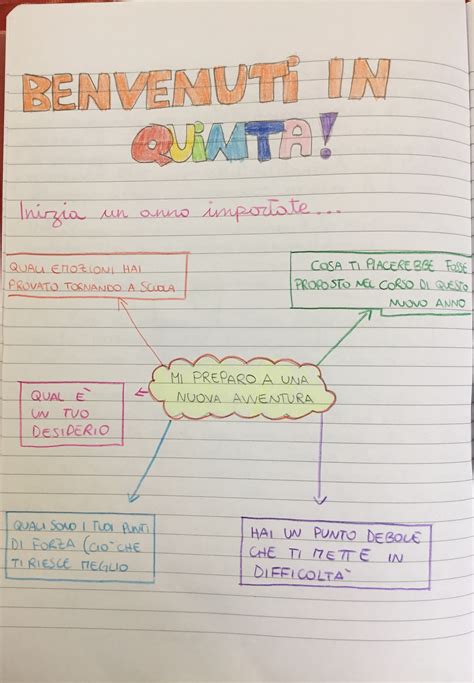 BENVENUTI IN
QUINTA!
Inizia un anno importate...
QUALI EMOZIONI HAI
PROVATO TORNANDO A SCUOLA
COSA TI PIACEREBBE FOSSE
PROPOSTO NEL CORSO DI QUESTO
NUOVO ANNO
MI PREPARO A UNA
NUOVA AVVENTURA
QUAL È
UN TUO
DESIDERIO
QUALI SONO I TUOI PUNTI
DI FORZA (CIO' CHE
TI RIESCE MEGLIO
HAI UN PUNTO DEBOLE
CHE TI METTE IN
DIFFICOLTA'